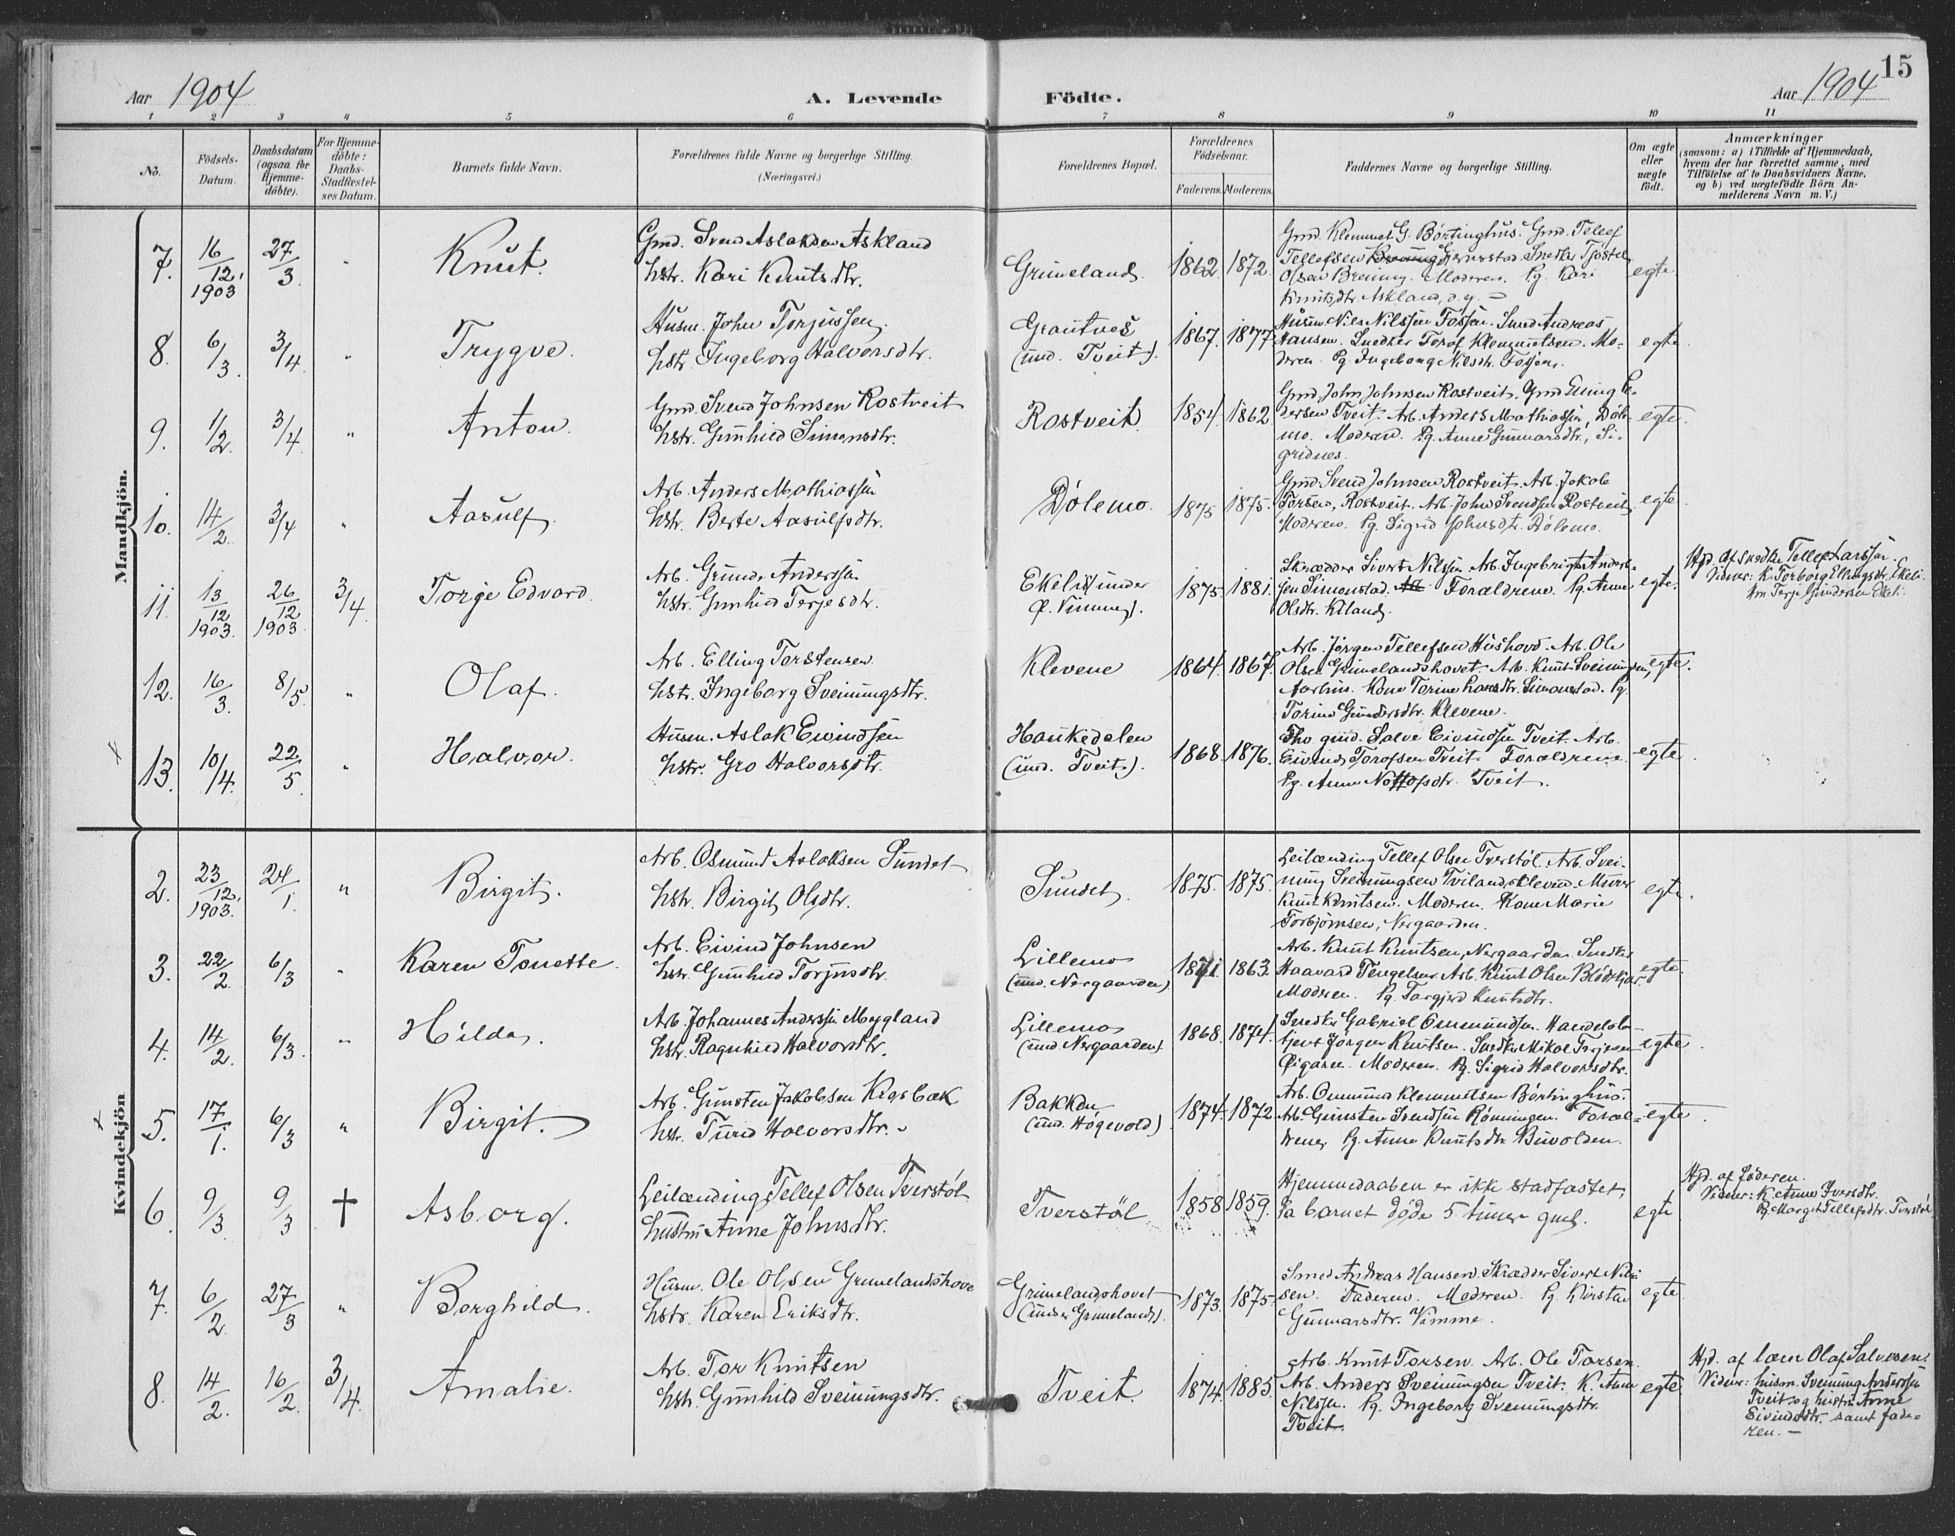 15
Aar 1904
A. Levende Födte.
Aar 1904
1 2 3 4 5 6 7 8 9 10 11
No.
Födsels-Datum.
Daabsdatum (ogsaa for Hjemmedöbte).
For Hjemmedöbte: Daabs-Stadfæstelses Datum.
Barnets fulde Navn.
Forældrenes fulde Navne og borgerlige Stilling. (Næringsvei.)
Forældrenes Bopæl.
Forældrenes Födselsaar.
Faderens. Moderens.
Faddernes Navne og borgerlige Stilling.
Om ægte eller uægte födt.
Anmærkninger
(saasom: a) i Tilfælde af Hjemmedaab, hvem der har forrettet samme, med Tilföielse af to Daabsvidners Navne, og b) ved uægtefödte Börn Anmelderens Navn m. V.)
Mandkjön.
7. 16/12 1903 27/3 " Knut.
Gmd. Svend Aslaksen Askland
hstr. Kari Knutsdtr.
Grimeland. 1862 1872.
Gmd. Klemmet G. Börtinghus. Gmd. Tellef
Tellefsen
Olsen Breiung. Moderen. Pg. Kari
Knutsdtr. Askland, o.g.
egte
8. 6/3 3/4 " Trygve.
Husm. John Torjussen.
hstr. Ingeborg Halvorsdtr.
Grautnes
(und. Tveit). 1867. 1877
Husm. Nils Nilssen Fossen. Smed Andreas
Hansen. Snedker Torof Klemmetsen. Mo-
deren. Pg. Ingeborg Nilsdtr. Fossen.
egte
9. 1/2 3/4 " Anton.
Gmd. Svend Johnsen Rostveit
hstr. Gunhild Simonsdtr.
Rostveit 1854. 1862
Gmd. John Johnsen Rostveit. Gmd. Elling Pe-
dersen Tveit. Arb. Anders Mathiassen, Døle-
mo. Moderen. Pg. Anne Gunnarsdtr., Si-
gridnes.
egte.
10. 14/2 3/4 " Aasulf.
Arb. Anders Mathiassen
hstr. Berte Aasulfsdtr.
Dølemo. 1875 1875.
Gmd. Svend Johnsen Rostveit. Arb. Jakob
Torsen, Rostveit. Arb. John Svendsen Rostveit
Moderen. Pg. Sigrid Johnsdtr. Dølemo.
egte
11. 13/12 1903. 26/12 1903. 3/4 Torge Edvard.
Arb. Gunder Anderssen
hstr. Gunhild Terjesdtr.
Ekelid (under
Ø. Vimme). 1875. 1881.
Skrædder Sivert Nilssen. Arb. Ingebrigt Anders-
sen Simonstad. Forældrene. Pg. Anne
Olsdtr. Kiland.
egte.
Hjd. af snedker Tellef Larssen.
Vidner: K. Torborg Ellingsdtr. Ekeli.
12. 16/3 8/5 " Olaf.
Arb. Elling Torstensen
hstr. Ingeborg Sveinungsdtr.
Klevene 1864. 1867.
Arb. Jørgen Tellefsen Hushovd. Arb. Ole
Olsen Grimelandshovet. Arb. Knut Sveinungsen,
Aarhus. Kone Torine Larsdtr. Simonstad. Pg.
Torine Gundersdtr. Klevene.
egte.
13. 10/4. 22/5. " Halvor.
Husm. Aslak Eivindsen
hstr. Gro Halvorsdtr.
Haukedalen
(und. Tveit). 1868. 1876.
Fho. gmd. Salve Eivindsen Tveit. Arb.
Eivind Torofsen Tveit. Forældrene.
Pg. Anne Nottofsdtr. Tveit.
egte
Kvindekjön
2. 23/12. 1903. 24/1. " Birgit.
Arb. Osmund Aslaksen Sundet
hstr. Birgit Olsdtr.
Sundet. 1875. 1875.
Leilænding Tellef Olsen Tverstøl. Arb. Svei-
nung Sveinungsen Tvilandskleven. Murer
Knut Knutsen. Moderen. Kone Marie
Torbjørnsen, Nergaarden.
egte.
3. 22/2 6/3 " Karen Tonette.
Arb. Eivind Johnsen
hstr. Gunhild Torjusdtr.
Lillemo
(und. Nergaarden) 1871. 1863.
Arb. Knut Knutsen, Nergaarden. Snedker
Haavard Tengelsen. Arb. Knut Olsen
Moderen. Pg. Torgjerd Knutsdtr.
egte
4. 14/2. 6/3. " Hilda.
Arb. Johannes Anderssen Mygland
hstr. Ragnhild Halvorsdtr.
Lillemo
(und. Nergaarden). 1868. 1874.
Snedker Gabriel Ommundsen. Handels-
tjent Jörgen Knutsen. Snedker Mikal Terjesen
Øigaren. Moderen. Pg. Sigrid Halvorsdtr.
egte.
5. 17/1. 6/3 " Birgit.
Arb. Gunsten Jakobsen Kigsbæk
hstr. Turid Halvorsdtr.
Bakken
(und. Høgevold). 1874. 1872.
Arb. Ommund Klemmetsen Börtinghus.
Arb. Gunsten Svendsen Rønningen. Foræl-
drene, Pg. Anne Knutsdtr. Buvolden.
egte
6. 9/3 9/3 † Asborg.
Leilænding Tellef Olsen Tverstøl
hustru Anne Johnsdtr.
Tverstøl 1858 1859.
Hjemmedaaben er ikke stadfæstet,
da barnet døde 5 timer gml.
egte
Hjd. af faderen.
Vidner: K. Anne Iversdtr.
Pg. Margit Tellefsdtr. Tverstøl
7. 6/2 27/3 " Borghild.
Husm. Ole Olsen Grimelandshove
hstr. Karen Eriksdtr.
Grimelandshovet
(under Grimeland). 1873. 1875.
Smed Andreas Hansen. Skrædder Sivert Nils-
sen. Faderen. Moderen. Pg. Kirsten
Gunnarsdtr. Vimme.
egte
8. 14/2. 16/2. 3/4. Amalie.
Arb. Tor Knutsen
hstr. Gunhild Sveinungsdtr.
Tveit. 1874. 1885.
Arb. Knut Torsen. Arb. Ole Torsen.
Arb. Anders Sveinungsen Tveit. K. Anne
Nilssen. Pg. Ingeborg Sveinungsdtr.
Tveit.
egte
Hjd. af lærer Olaf Salvesen.
Vidner: husm. Sveinung Anderssen
Tveit og hustru Anne
Eivindsdtr. samt fade-
ren. —